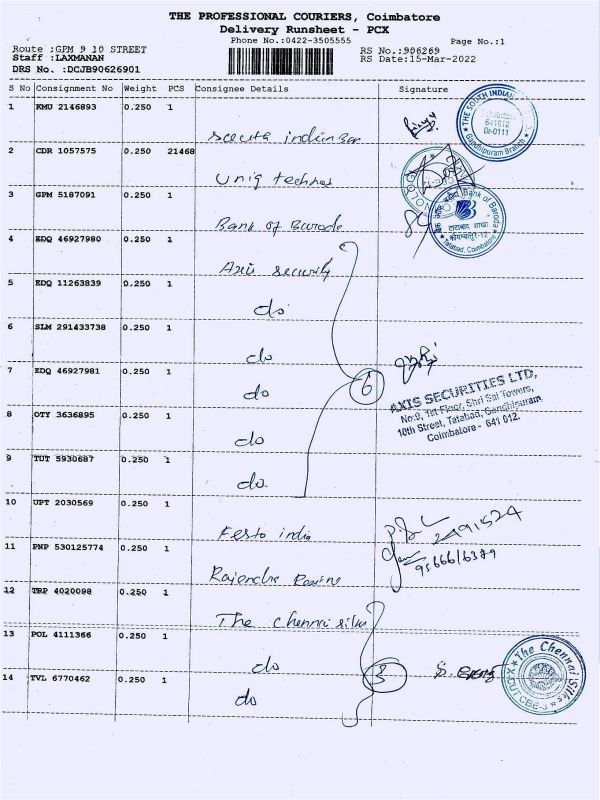 THE PROFESSIONAL COURIERS, Coimbatore
Delivery Runsheet - PCX
Phone No.:0422-3505555
Page No.:1
Route :GPM 9 10 STREET
RS No.:906269
Staff :LAXMANAN
RS Date:15-Mar-2022
DRS No. :DCJB90626901
S No Consignment No Weight PCS Consignee Details Signature
1 KMU 2146893 0.250 1
THE SOUTH INDIAN
641012
Br-0111
Gandhipuram Branch
2 CDR 1057575 0.250 21468
Uniq
3 GPM 5187091 0.250 1
Bank of Baroda
Bank of Baroda
टाटाबाद शाखा
Tatabad, Coimbatore
4 EDQ 46927980 0.250 1
Axis security
5 EDQ 11263839 0.250 1
do
6 SLM 291433738 0.250 1
do
7 EDQ 46927981 0.250 1
do
6
AXIS SECURITIES LTD,
No:9, 1st Floor, Shri Sai Towers,
10th Street, Tatabad, Gandhipuram
Coimbatore - 641 012.
8 OTY 3636895 0.250 1
do
9 TUT 5930687 0.250 1
do
10 UPT 2030569 0.250 1
Festo india
2491524
11 PNP 530125774 0.250 1
Rajendra
12 TRP 4020098 0.250 1
The Chennai silks
13 POL 4111366 0.250 1
do
3
The Chennai Silks
14 TVL 6770462 0.250 1
do